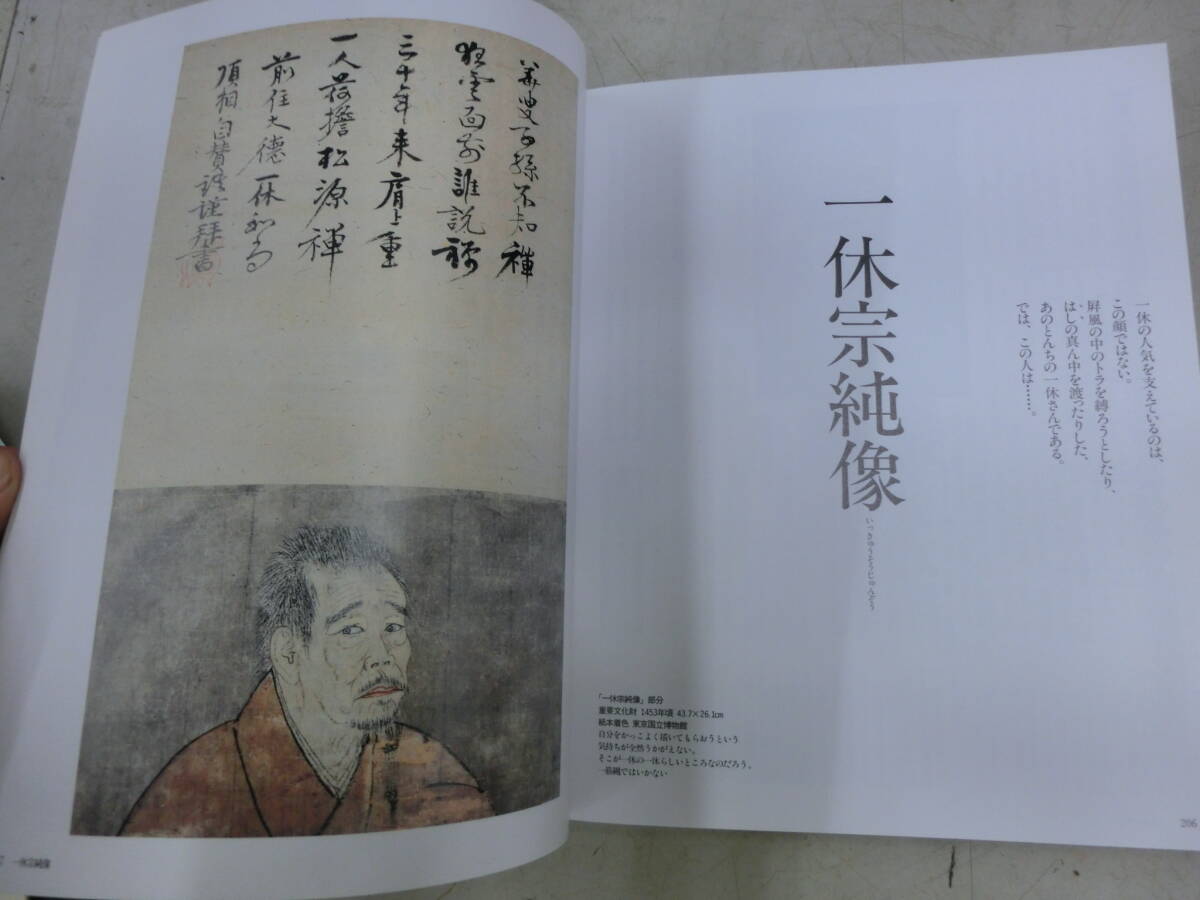 一休の人気を支えているのは、
この顔ではない。
屛風の中のトラを縛ろうとしたり、
はしの真ん中を渡ったりした、
あのとんちの一休さんである。
では、この人は……。
一休宗純像
いっきゅうそうじゅんぞう
「一休宗純像」部分
重要文化財 1453年頃 43.7×26.1cm
紙本着色 東京国立博物館
自分をかっこよく描いてもらおうという
気持ちが全然うかがえない。
そこが一休の一休らしいところなのだろう。
一筋縄ではいかない
206
華叟子孫不知禅
狂雲面前誰説禅
三十年来肩上重
一人荷擔松源禅
前住大徳一休和尚
頂相自賛
謹拝書
一休宗純像